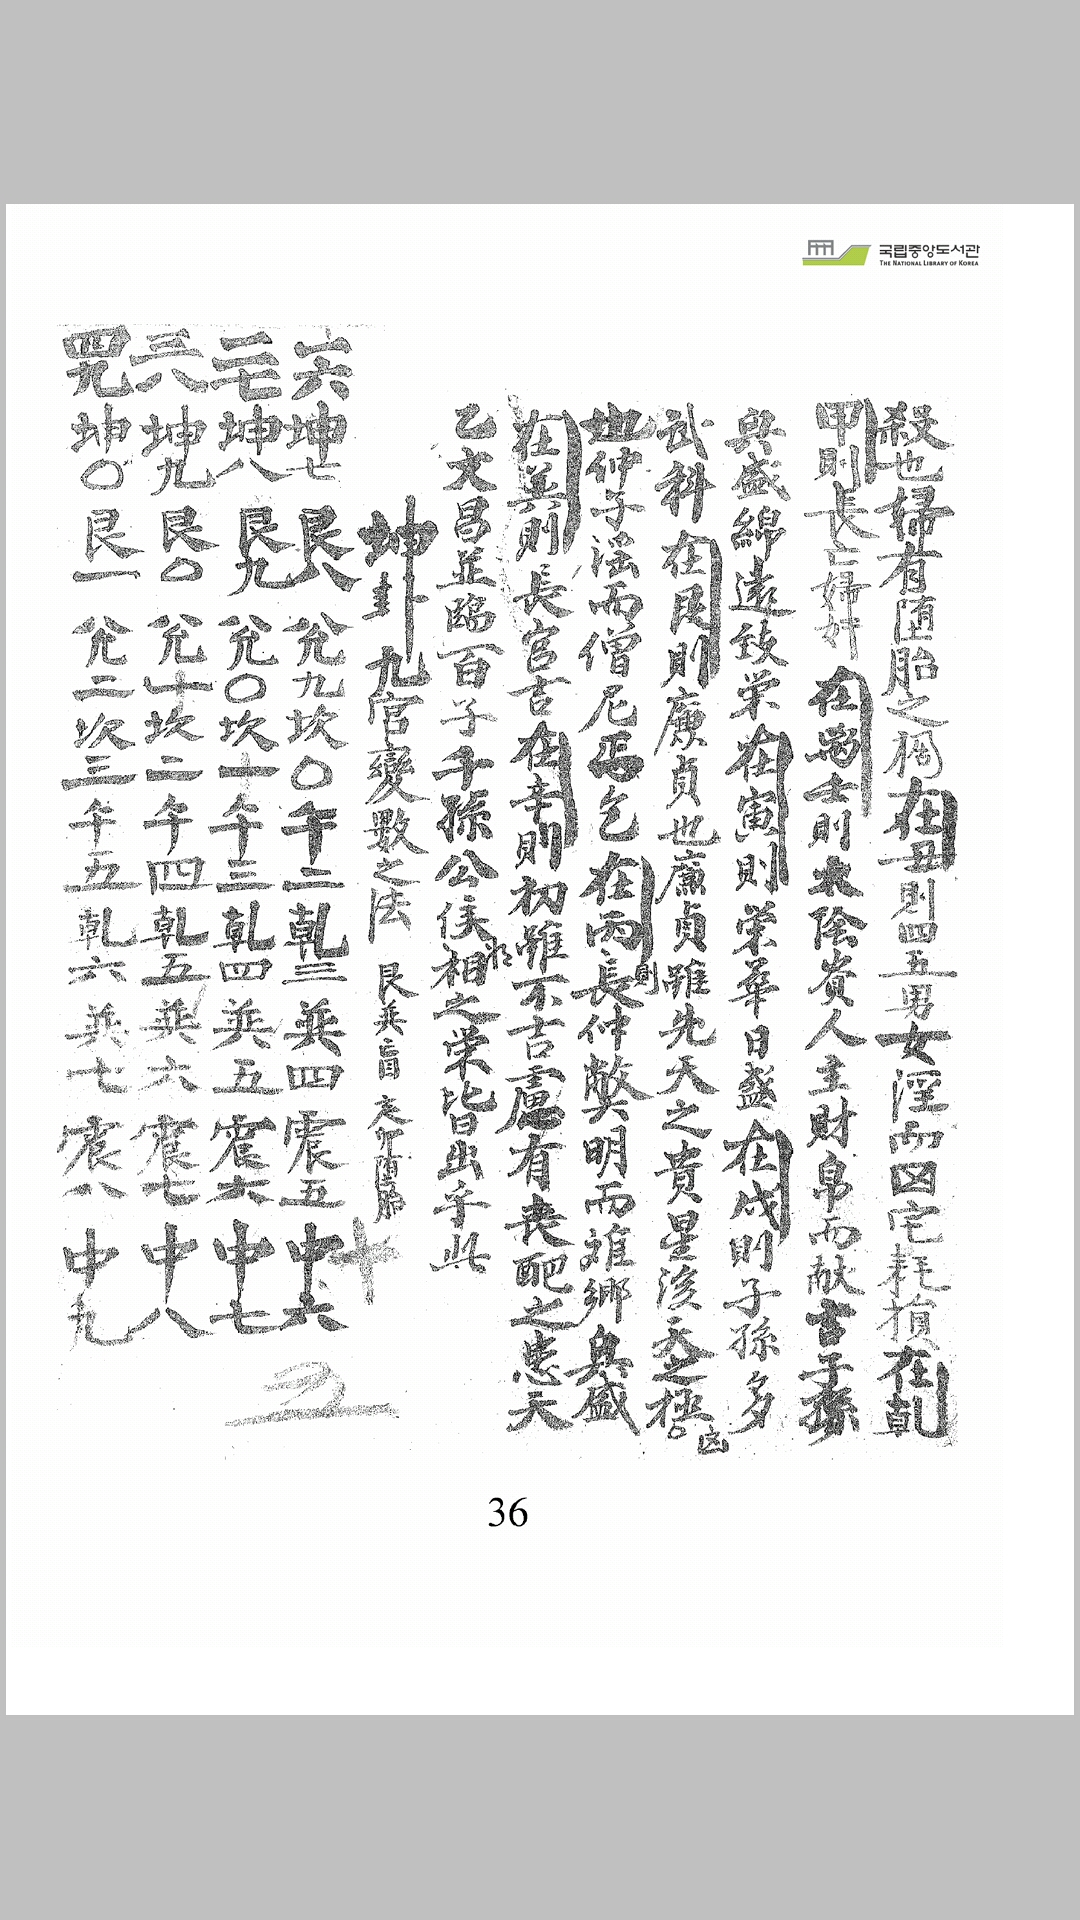 국립중앙도서관
THE NATIONAL LIBRARY OF KOREA
殺也婦有堕胎之禍在丑則四五男女淫而因宅耗損在乾
甲則長亡婦奸在士則太陰貴人主財帛而献吉子孫
興盛綿遠致栄在寅則栄華日盛在戌則子孫多
武科在艮則廉貞也廉貞雖先天之貴星後天之極凶
也仲子滛而僧尼丐乞在丙則長仲弊明而雄郷興盛
在巽則長官吉在辛則初雖不吉慮有喪配之患天
乙文昌並臨百子千孫公侯将相之栄皆出乎此
坤卦九宮變数之法 艮巽盲
一六 坤七 艮八 兊九 坎〇 午二 乹三 巽四 震五 中六 十
二七 坤八 艮九 兊〇 坎十 午三 乹四 巽五 震六 中七
三八 坤九 艮〇 兊十 坎二 午四 乹五 巽六 震七 中八
四九 坤〇 艮一 兊二 坎三 午五 乹六 巽七 震八 中九
36